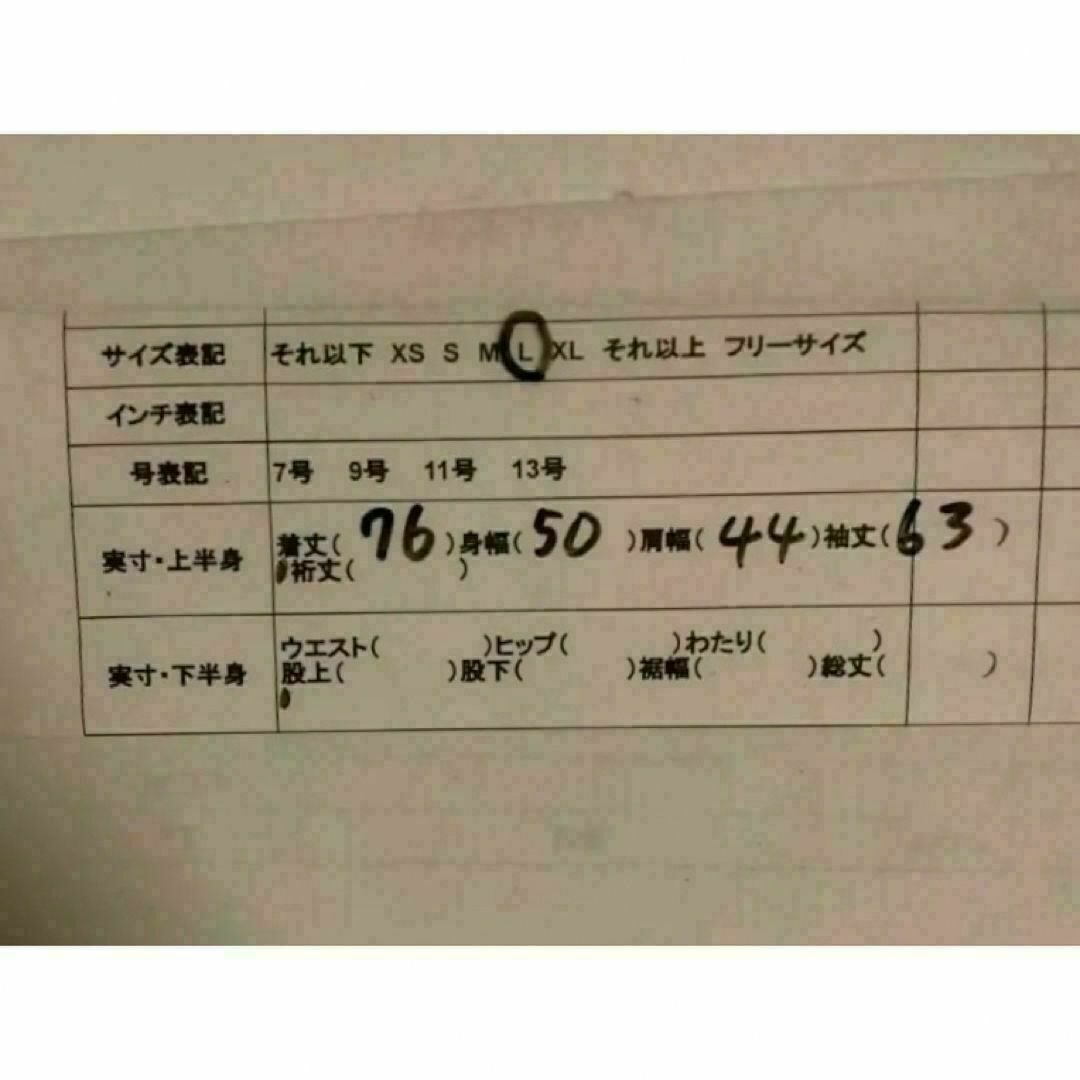 サイズ表記 それ以下 XS S M L XL それ以上 フリーサイズ
インチ表記
号表記 7号 9号 11号 13号
実寸・上半身 着丈( 76 )身幅( 50 )肩幅( 44 )袖丈( 63 )
裄丈( )
実寸・下半身 ウエスト( )ヒップ( )わたり( )
股上( )股下( )裾幅( )総丈( )